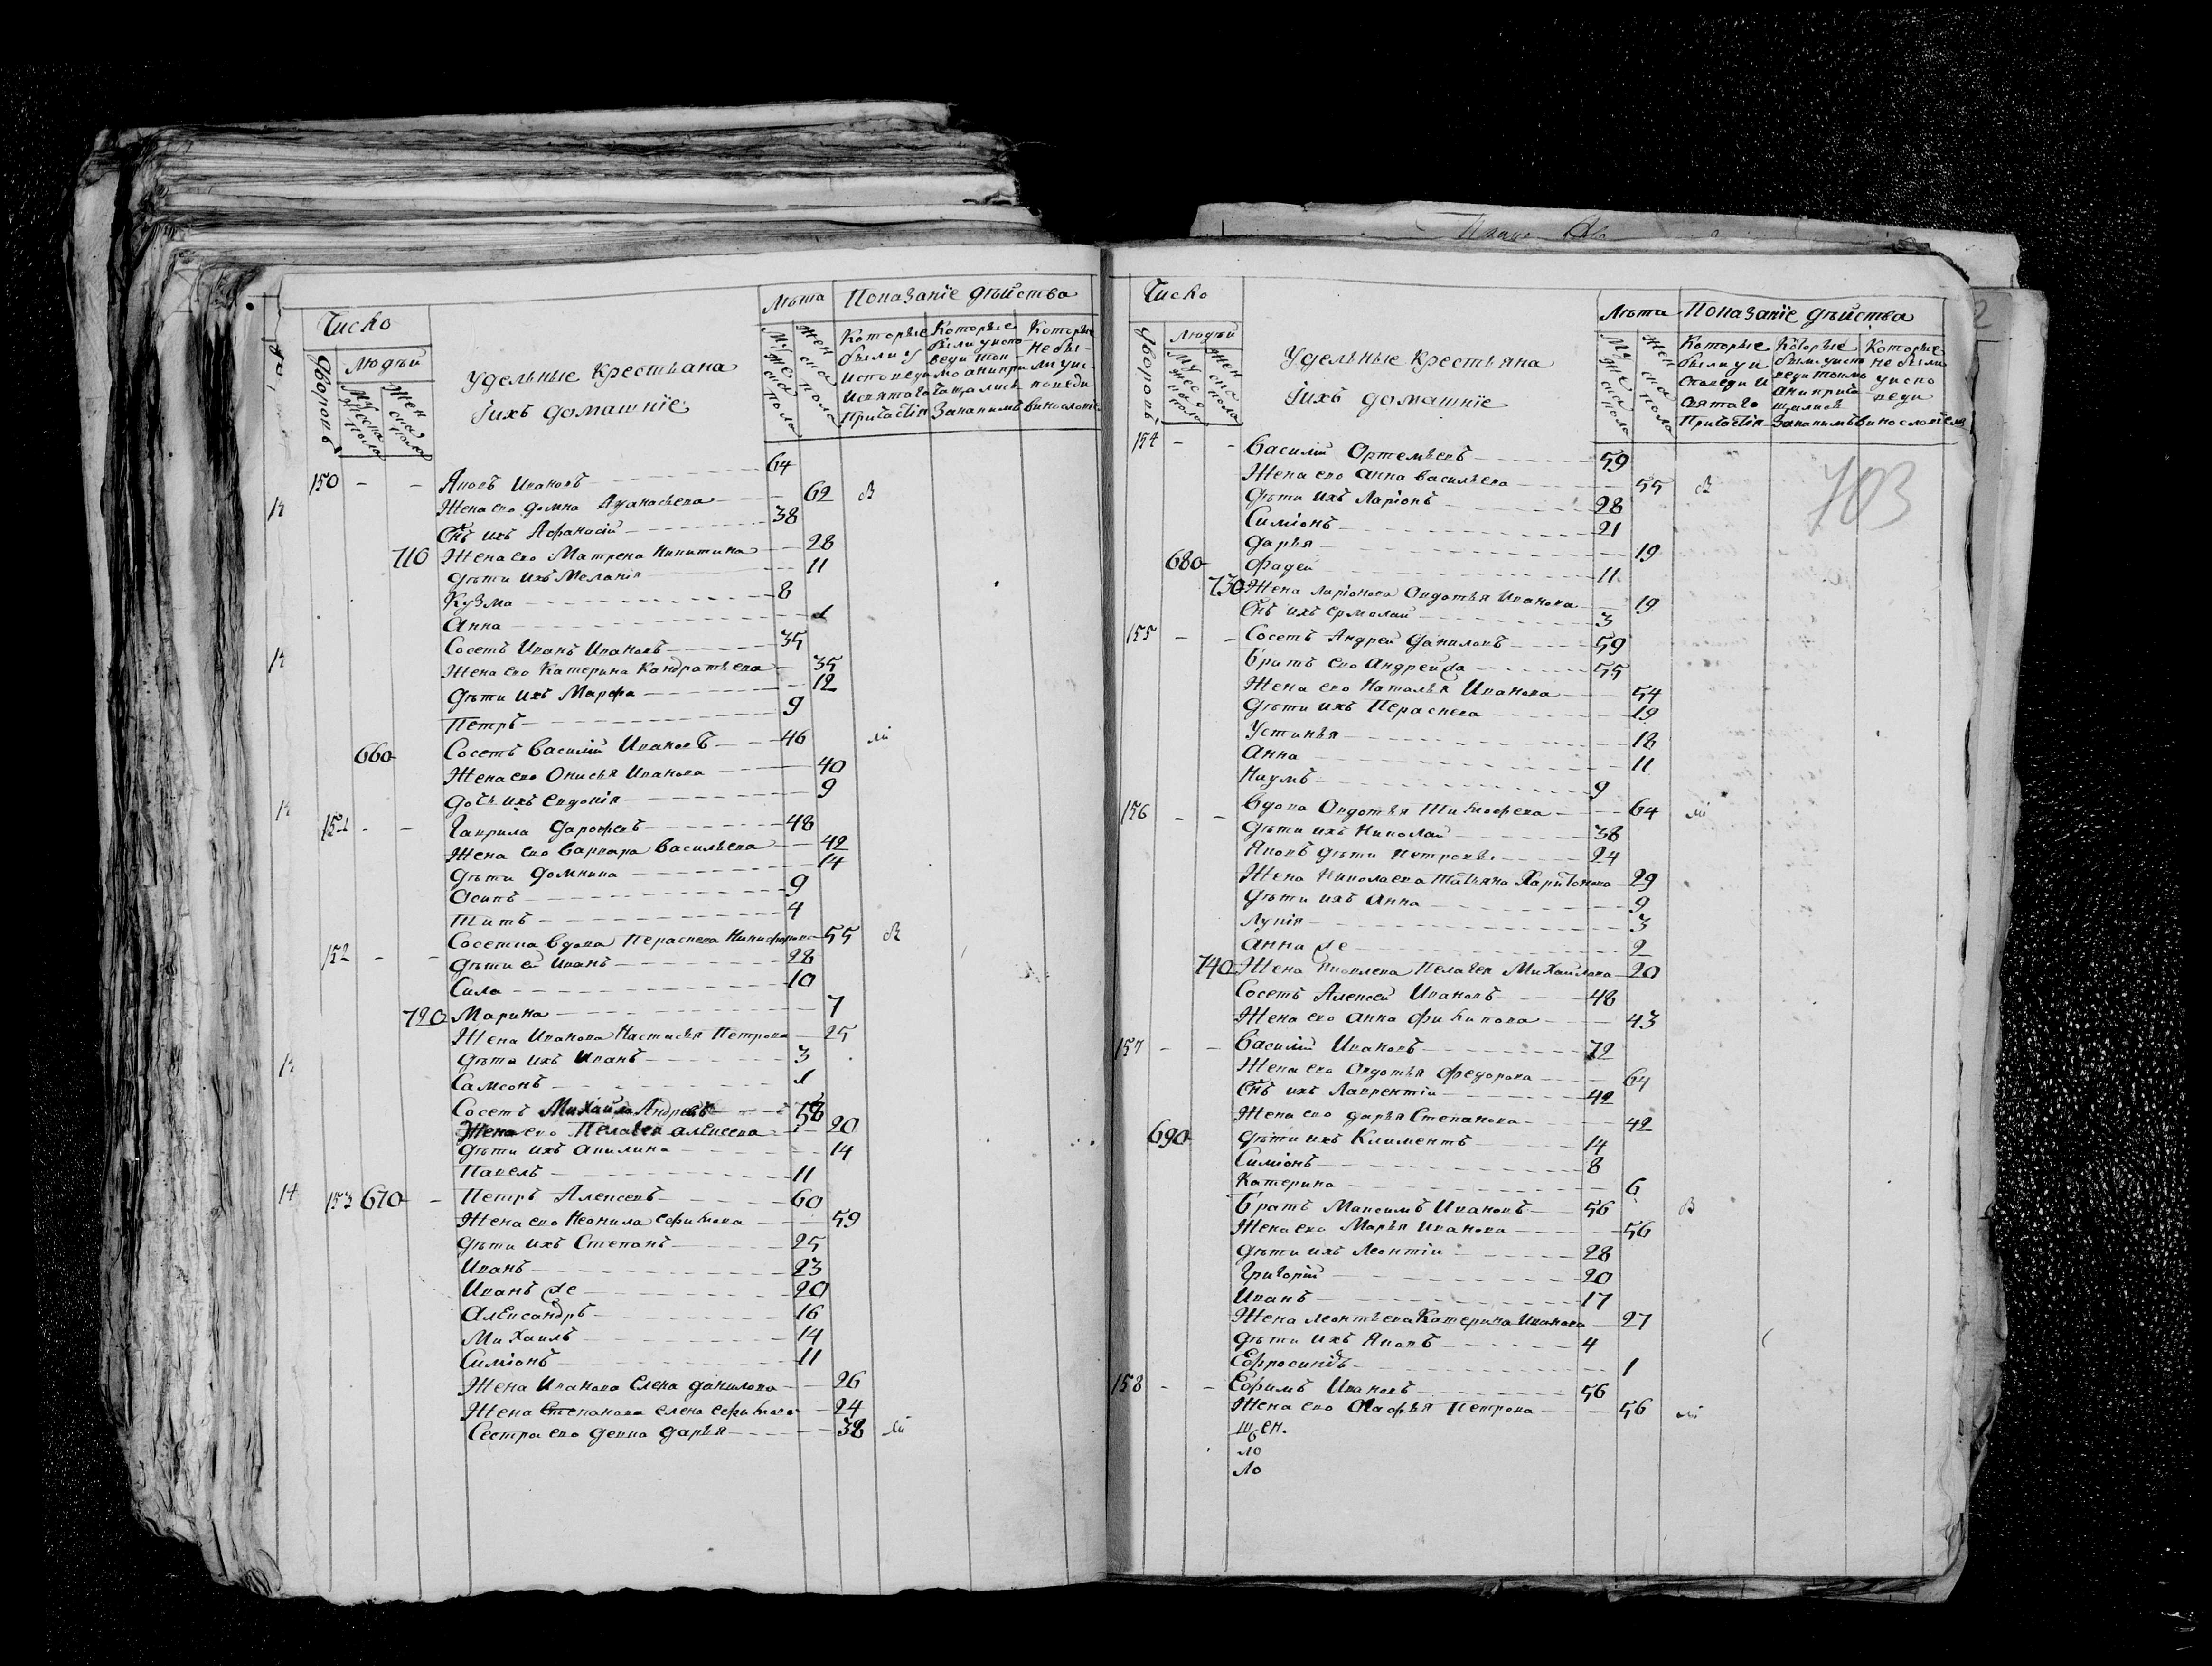 Число
Лѣта Показанїе дѣйства
Дворовъ
Людѣй
Мужеска пола
Женска пола
Удельные Крестьяна
їихъ домашнїе
Мужеска пола
Женска пола
Которые были у исповеди и святаго причастія
Которые были у исповеди токмо а не причащались за каким
Которые не были у исповеди
150 - - Яковъ Ивановъ 64
Жена его Домна Афанасьева 62
Снъ ихъ Афанасий 38
710 Жена его Матрена Никитина 28
Дѣти ихъ Меланія 11
Кузма 8
Анна 1
Сосетъ Иванъ Ивановъ 35
Жена его Катерина Кандратьева 35
Дѣти ихъ Марфа 12
Петръ 9
660 Сосетъ Василий Ивановъ 46
Жена его Онисья Ивановa 40
Дочь ихъ Евдокія 9
151 - - Гаврила Дарофеевъ 48
Жена его Варвара Васильева 42
Дѣти Домнина 14
Осипъ 9
Титъ 4
152 - - Соседка вдова Пераскева Никифорова 55
Дѣти ей Иванъ 28
Сила 10
720 Марина 7
Жена Иванова Настасья Петрова 25
Дѣти ихъ Иванъ 3
Самсонъ 1
Сосетъ Михайла Андреевъ
Жена его Пелагея Алексеева 20
Дѣти ихъ Акилина 14
Павелъ 11
153 670 - Петръ Алексеевъ 60
Жена его Неонила Ефимова 59
Дѣти ихъ Степанъ 25
Иванъ 23
Иванъ же 20
Александръ 16
Михаилъ 14
Симіонъ 11
Жена Иванова Елена Данилова 26
Жена Степанова Елена Ефимова 24
Сестра его девка Дарья 38
Число
Лѣта Показанїе дѣйства
Дворовъ
Людѣй
Мужеска пола
Женска пола
Удельные Крестьяна
їихъ домашнїе
Мужеска пола
Женска пола
703
154 - - Василий Ортемьевъ 59
Жена его Анна Васильева 55
Дѣти ихъ Ларіонъ 28
Симіонъ 21
Дарья 19
680 Фадей 11
730 Жена Ларіонова Овдотья Иванова 19
Снъ ихъ Ермолай 3
155 - - Сосетъ Андрей Даниловъ 59
Братъ его Андрей же 55
Жена его Наталья Иванова 54
Дѣти ихъ Пераскева 19
Устинья 18
Анна 11
Наумъ 9
156 - - Вдова Овдотья Тимофева 64
Дѣти ихъ Николай 38
Яковъ Дѣти Петровы 24
Жена Николаева Татьяна Харитонова 29
Дѣти ихъ Анна 9
Лукія 3
Анна же 2
740 Жена Яковлева Пелагея Михайлова 20
Сосетъ Алексей Ивановъ 48
Жена его Анна Филипова 43
157 - - Василий Ивановъ 72
Жена его Овдотья Федорова 64
Снъ ихъ Лаврентій 42
Жена его Дарья Степанова 42
690 Дѣти ихъ Климентъ 14
Симіонъ 8
Катерина 6
Братъ Максимъ Ивановъ 56
Жена его Марья Иванова 56
Дѣти ихъ Леонтій 28
Григорій 20
Иванъ 17
Жена Леонтьева Катерина Иванова 27
Дѣти ихъ Яковъ 4
Ефросинія 1
158 - - Ефимъ Ивановъ 56
Жена его Агафья Петрова 56